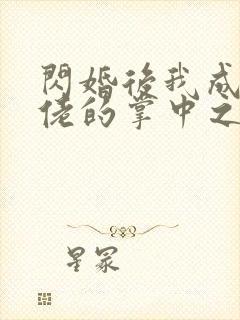 閃婚後我成
佬的掌中之
星冢